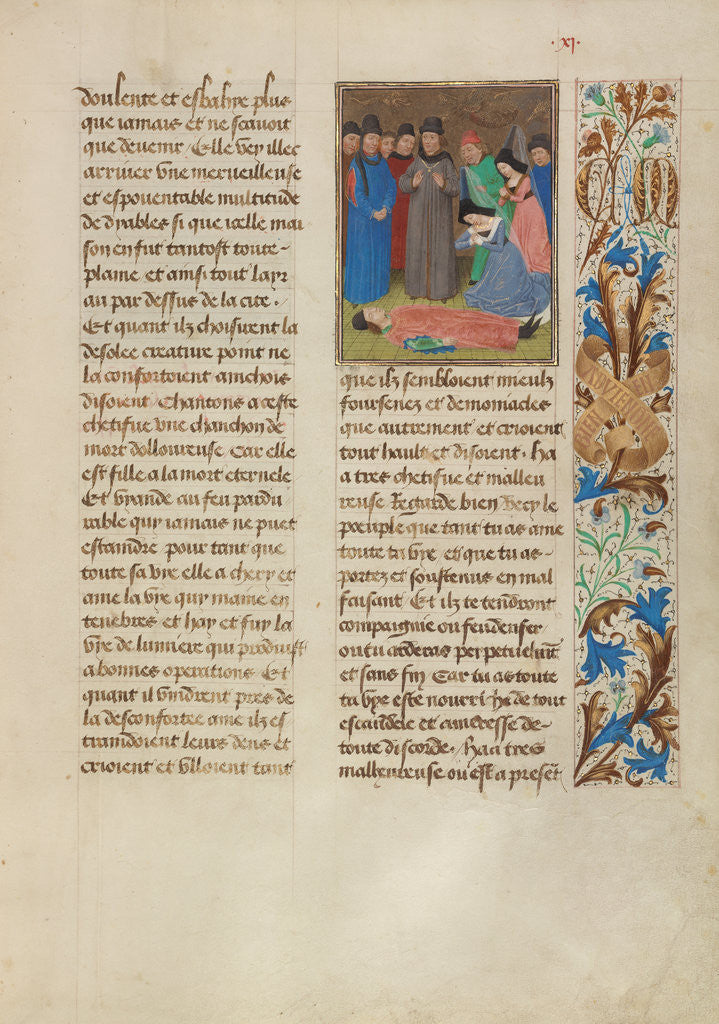 ·xj·
doulente et esbahye plus
que iamais et ne scauoit
que deuenir Elle vey illec
arriuer vne merueilleuse
et espouentable multitude
de dyables si que icelle mai
son en fut tantost toute-
plaine et ainsi tout layr
au par dessus de la cite.
Et quant ilz choisirent la
desolee creature point ne
la confortoient ainchois
disoient Chantons a ceste
chetifue vne chanchon de
mort dolloureuse Car elle
est fille a la mort eternele
Et vyande au feu pardu
rable quy iamais ne puet
estaindre pour tant que
toute sa vye elle a chery et
ame la vye quy maine en
tenebres et hay et fuy la
vye de lumiere qui produist
a bonnes operations Et
quant il vindrent pres de
la desconfortee ame ilz es
traindoient leurs dens et
crioient et vlloient tant
que ilz sembloient mieulz
foursenez et demoniacles
que autrement et crioient
tout hault et disoient. Ha
a tres chetifue et malleu
reuse Regarde bien Vecy le
poeuple que tant tu as ame
toute ta vye et que tu as-
portez et soustenus en mal
faisant Et ilz te tendront
compaignie ou feu denfer
ou tu arderas perpetuelmt
et sans fin Car tu as toute
ta vye este nourrihe de tout
escandele et ameresse de-
toute discorde. Haa tres
malheureuse ou est a presēt